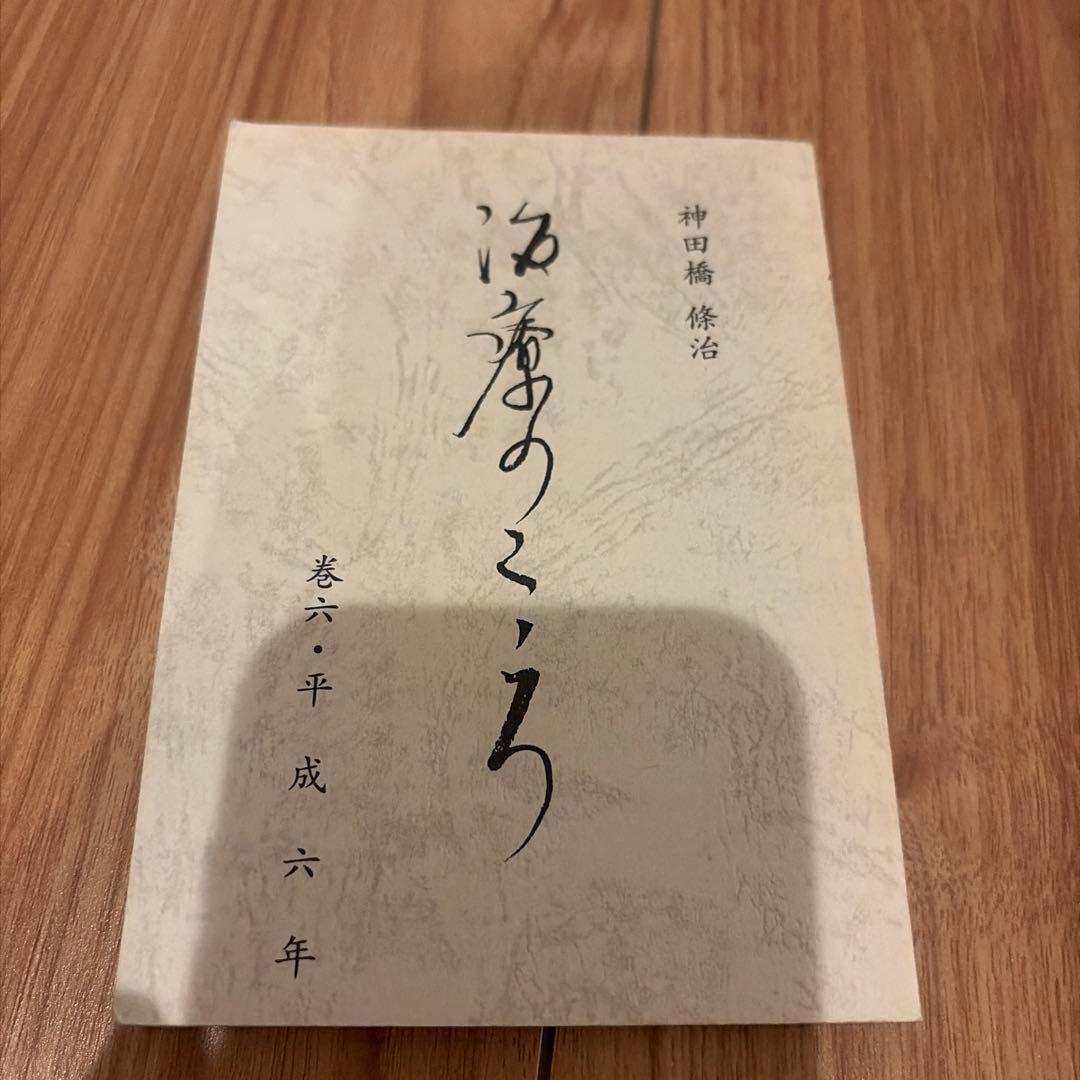 神田橋 條治
治療のこゝろ
巻六・平成六年